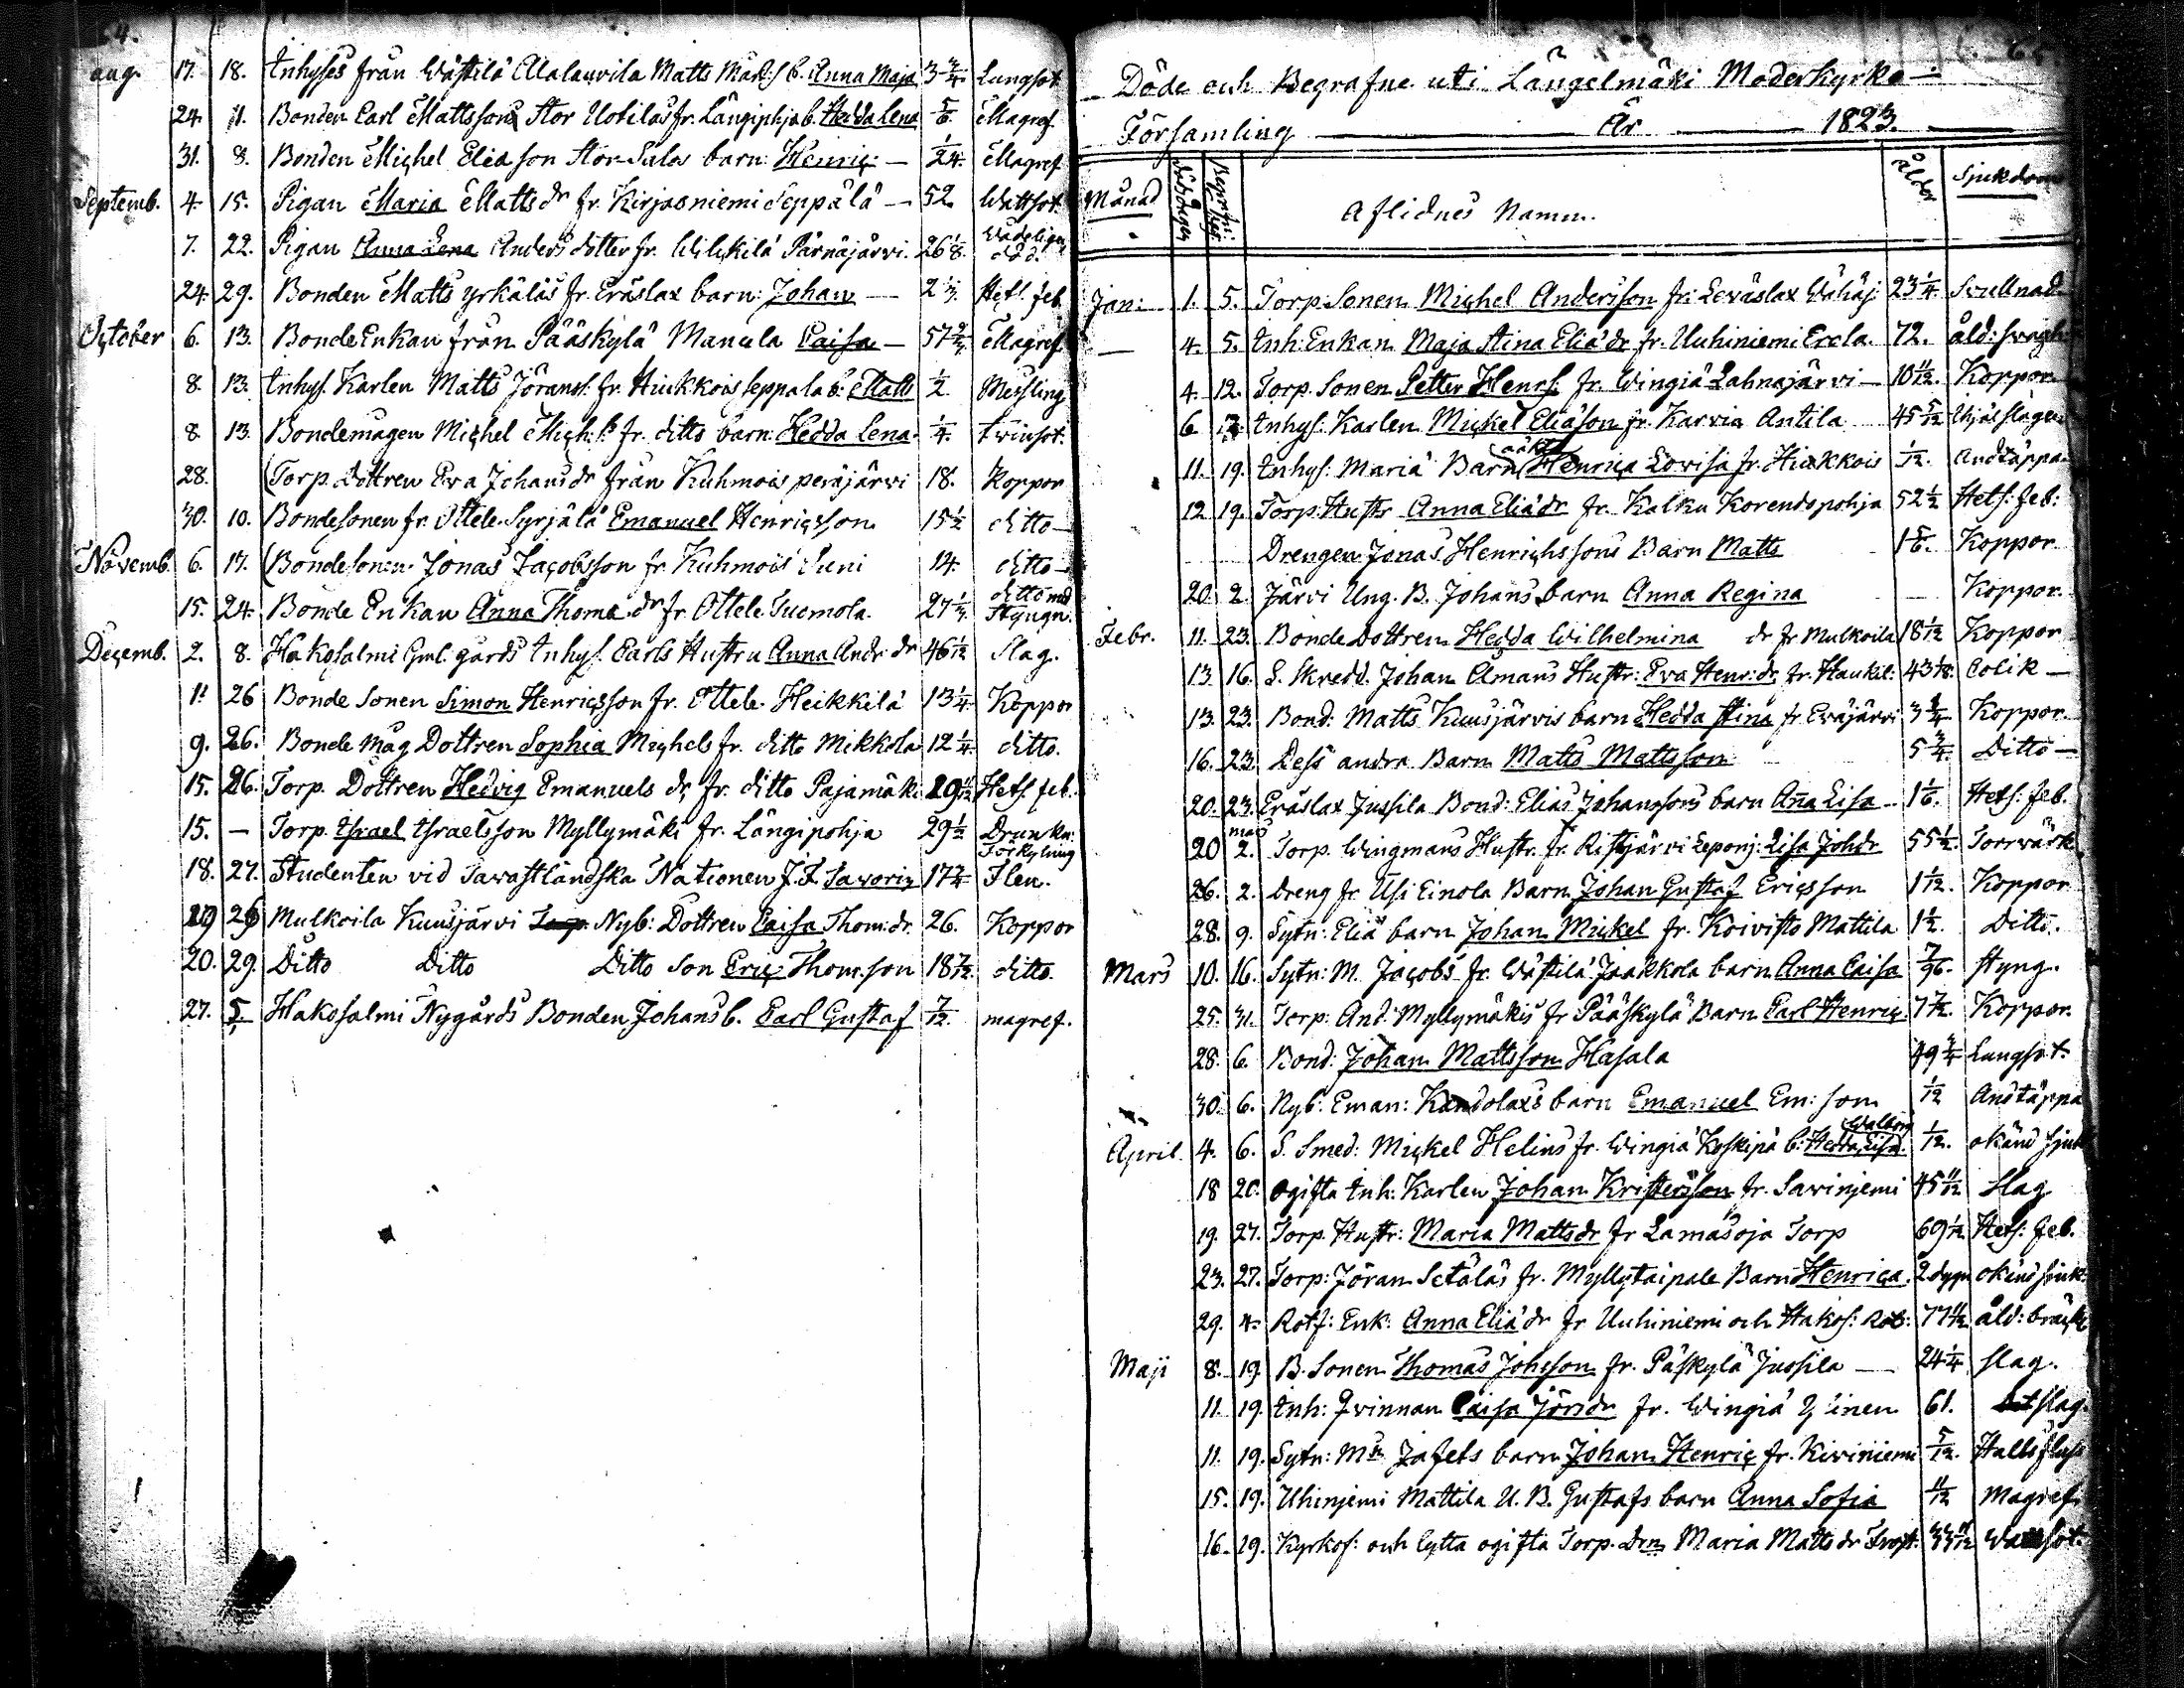 64.
aug. 17. 18. Inhyses från Wästilä Alalauvila Matts Matss b. Anna Maja 3 3/4 Lungsot
24. 11. Bonden Carl Mattssons Stor Uotilas fr. Längipohja b. Hedda Lena 5/6 Magref.
31. 8. Bonden Michel Eliason Stor-Salos barn: Henric — 1/24. Magref
Septemb. 4. 15. Pigan Maria Matts dr fr. Kirjasniemi Seppälä — 52. Wattsot.
7. 22. Pigan Anna Lena Anders dotter fr. Wilkkilä Pärnäjärvi. 26 1/8. Wådeligen död.
24. 29. Bonden Matts yrkäläs fr. Eräslax barn: Johan — 2 1/3. Hets. feb.
October 6. 13. BondeEnkan från Pääskylä Manula Caisa — 57 2/3 Magref
8. 13. Inhys. Karlen Matts Jöranss. fr. Hiukkois Seppala b: Matts 1/2 Messling
8. 13. Bondemågen Michel Mich: s: fr. ditto barn: Hedda Lena. 1/4. Twinsot.
28. (Torp. Dottren Eva Johans dr från Kuhmois peräjärvi 18. Koppor
30. 10. Bondesonen fr. Ottele. Syrjälä Emanuel Henricsson. 15 1/2 ditto —
Novemb. 6. 17. (Bondesonen. Jonas Jacobsson fr Kuhmois Suni 14. ditto —
15. 24. Bonde Enkan Anna Thomæ dr fr. Ottele. Tuomola. 27 1/3. ditto med Styngn.
Decemb. 2. 8. Hakosalmi Gml. gårds Inhys. Carls Hustru Anna Andr. dr 46 1/12 Slag.
1. 26 Bonde Sonen Simon Henricsson fr. Ottele. Heikkilä 13 1/4. Koppor
9. 26. Bonde Måg Dottren Sophia Michels fr. ditto Mikkola 12 1/4. ditto.
15. 26. Torp. Dottren Hedvig Emanuels dr, fr. ditto Pajamäki 29 1/12 Hets. feb.
15. — Torp. Israel Israelsson Myllymäki fr. Längipohja 29 1/2 Drunkn: Förkylning
18. 27. Studenten vid Tavastländska Nationen J. F. Savorin 17 3/4. Flen.
19 26 Mulkoila Kuusjärvi Torp. Nyb: Dottren Caisa Thom: dr. 26. Koppor
20. 29. Ditto Ditto Ditto Son Eric Thom. son 18 7/12. ditto.
27. 5. Hakosalmi Nygårds Bonden Johans b. Carl Gustaf 7/12. magref.
Döde och Begrafne uti Längelmäki Moderkyrko —
Församling — År — 1823. —
Månad Dödsdagen Begrafn: Aflidnes Namn. Ålder Sjukdom
Jan: 1. 5. Torp. Sonen Michel Andersson fr: Leväslax Wähäj 23 1/4. Svullnad.
— 4. 5. Inh: Enkan Maja Stina Eliæ dr fr. Uuhiniemi Erola. 72. åld: svagh
4. 12. Torp. Sonen Petter Henrs. fr. Wingiä Lahnajärvi — 10 11/12. Koppor.
6 12. Inhys. Karlen Mickel Eliason fr. Karvia Antila 45 5/12 Ihjälslagen
11. 19. Inhys. Mariæ Barn oäkta Henrica Lovisa fr. Hiukkois 1/12. Andtäppa.
12 19. Torp. Hustr Anna Eliædr fr. Kalku Korendopohja 52 1/2 Hets: feb:
Drengen Jonas Henrichssons Barn Matts 1 5/6. Koppor
20. 2. Järvi Ung. B. Johans barn Anna Regina — Koppor
Febr. 11. 23. Bonde Dottren Hedda Wilhelmina dr fr Mulkoila 18 1/12 Koppor
13. 16. S. Skredd. Johan Almans Hustr: Eva Henr: dr. fr. Haukil: 43 1/8. Colik —
13. 23. Bond: Matts Kuusjärvis barn Hedda Stina fr. Eväjärvi 3 3/4 Koppor.
16. 23. Dess andra Barn Matts Mattsson 5 3/4. Ditto —
20. 23. Eräslax Jussila Bond: Elias Johanssons barn Anna Lisa — 1 1/6. Hets: feb.
20 mars 2. Torp. Wingmans Hustr. fr. Ristjärvi Leponj: Lisa Johdr 55 1/2. Torrvärk
26. 2. Dreng fr Usi Einola Barn Johan Gustaf Ericsson 1 1/12. Koppor
28. 9. Sytn: Eliæ barn Johan Mickel fr. Koivisto Mattila 1 1/2. Ditto.
Mars 10. 16. Sytn: M. Jacobs fr. Wästilä Jaakkola barn Anna Caisa 7/96. Styng.
25. 31. Torp. And. Myllymäkis fr Pääskylä Barn Carl Henric. 7 7/12. Koppor.
28. 6. Bond: Johan Mattsson Hasala 49 3/4 Lungsot.
30. 6. Nyb: Eman: Kandolaxs barn Emanuel Em: son 1/12 Andtäppa
April. 4. 6. S. Smed: Mickel Helins fr. Wingiä Koskipä b: Hedda Lisa Walborg 1/12. okänd sjuk
18 20. Ogifta Inh: Karlen Johan Kristersson fr. Savinjemi 45 11/12 Slag
19. 27. Torp. Hustr: Maria Matts dr fr Lamasoja Torp 69 1/12 Hets: feb.
23. 27. Torp: Jöran Setäläs fr. Myllytaipale Barn Henrica. 2 dygn okänd sjuk:
29. 4. Rotf: Enk: Anna Eliæ dr fr Uuhiniemi och Hakos: Rot: 77 11/12 åld: bräckl
Maji 8. 19. B. Sonen Thomas Johsson fr. Päskylä Jussila — 24 1/4 Slag.
11. 19. Inh: Qvinnan Caisa Jörsdr fr. Wingiä 61. Slag.
11. 19. Sytn: M:n Jafets barn Johan Henric fr. Kiviniemi 5/12. Halls fluss
15. 19. Uhinjemi Mattila U. B. Gustafs barn Anna Sofia 11/12 Magref
16. 29. Kyrkof: och lytta ogifta Torp. Drn Maria Matts dr 33 11/12 Wattsot.